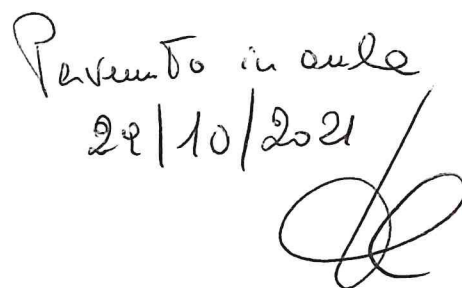 Pervenuto in aula
29/10/2021